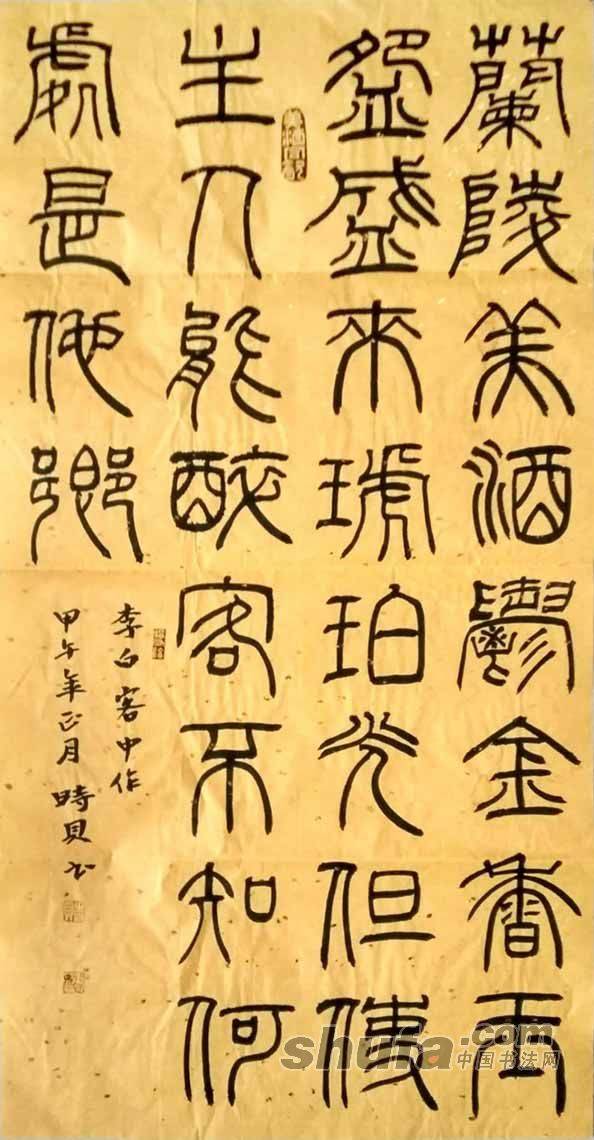 蘭陵美酒鬱金香玉
盌盛來琥珀光但使
主人能醉客不知何
處是他鄉
李白客中作
甲午年正月時貝书
shufa.com
中国书法网